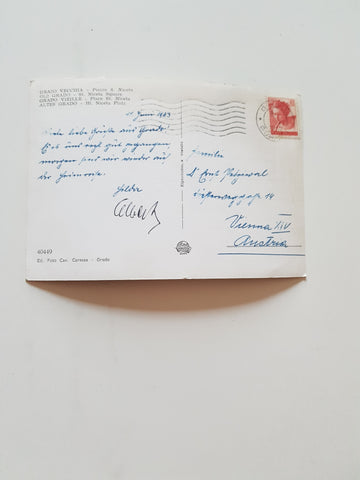 GRADO VECCHIA - Piazza S. Niceta
OLD GRADO - St. Niceta Square
GRADO VIEILLE - Place St. Niceta
ALTES GRADO - Hl. Niceta Platz
Juni 1963
Viele liebe Grüße aus Grado!
Es ist uns gut gegangen
morgen sind wir wieder auf
der Heimreise.
Hilda
Albert
Familie
Ernst
14
Vienna XIV
Austria
40449
Ed. Foto Can. Caressa - Grado